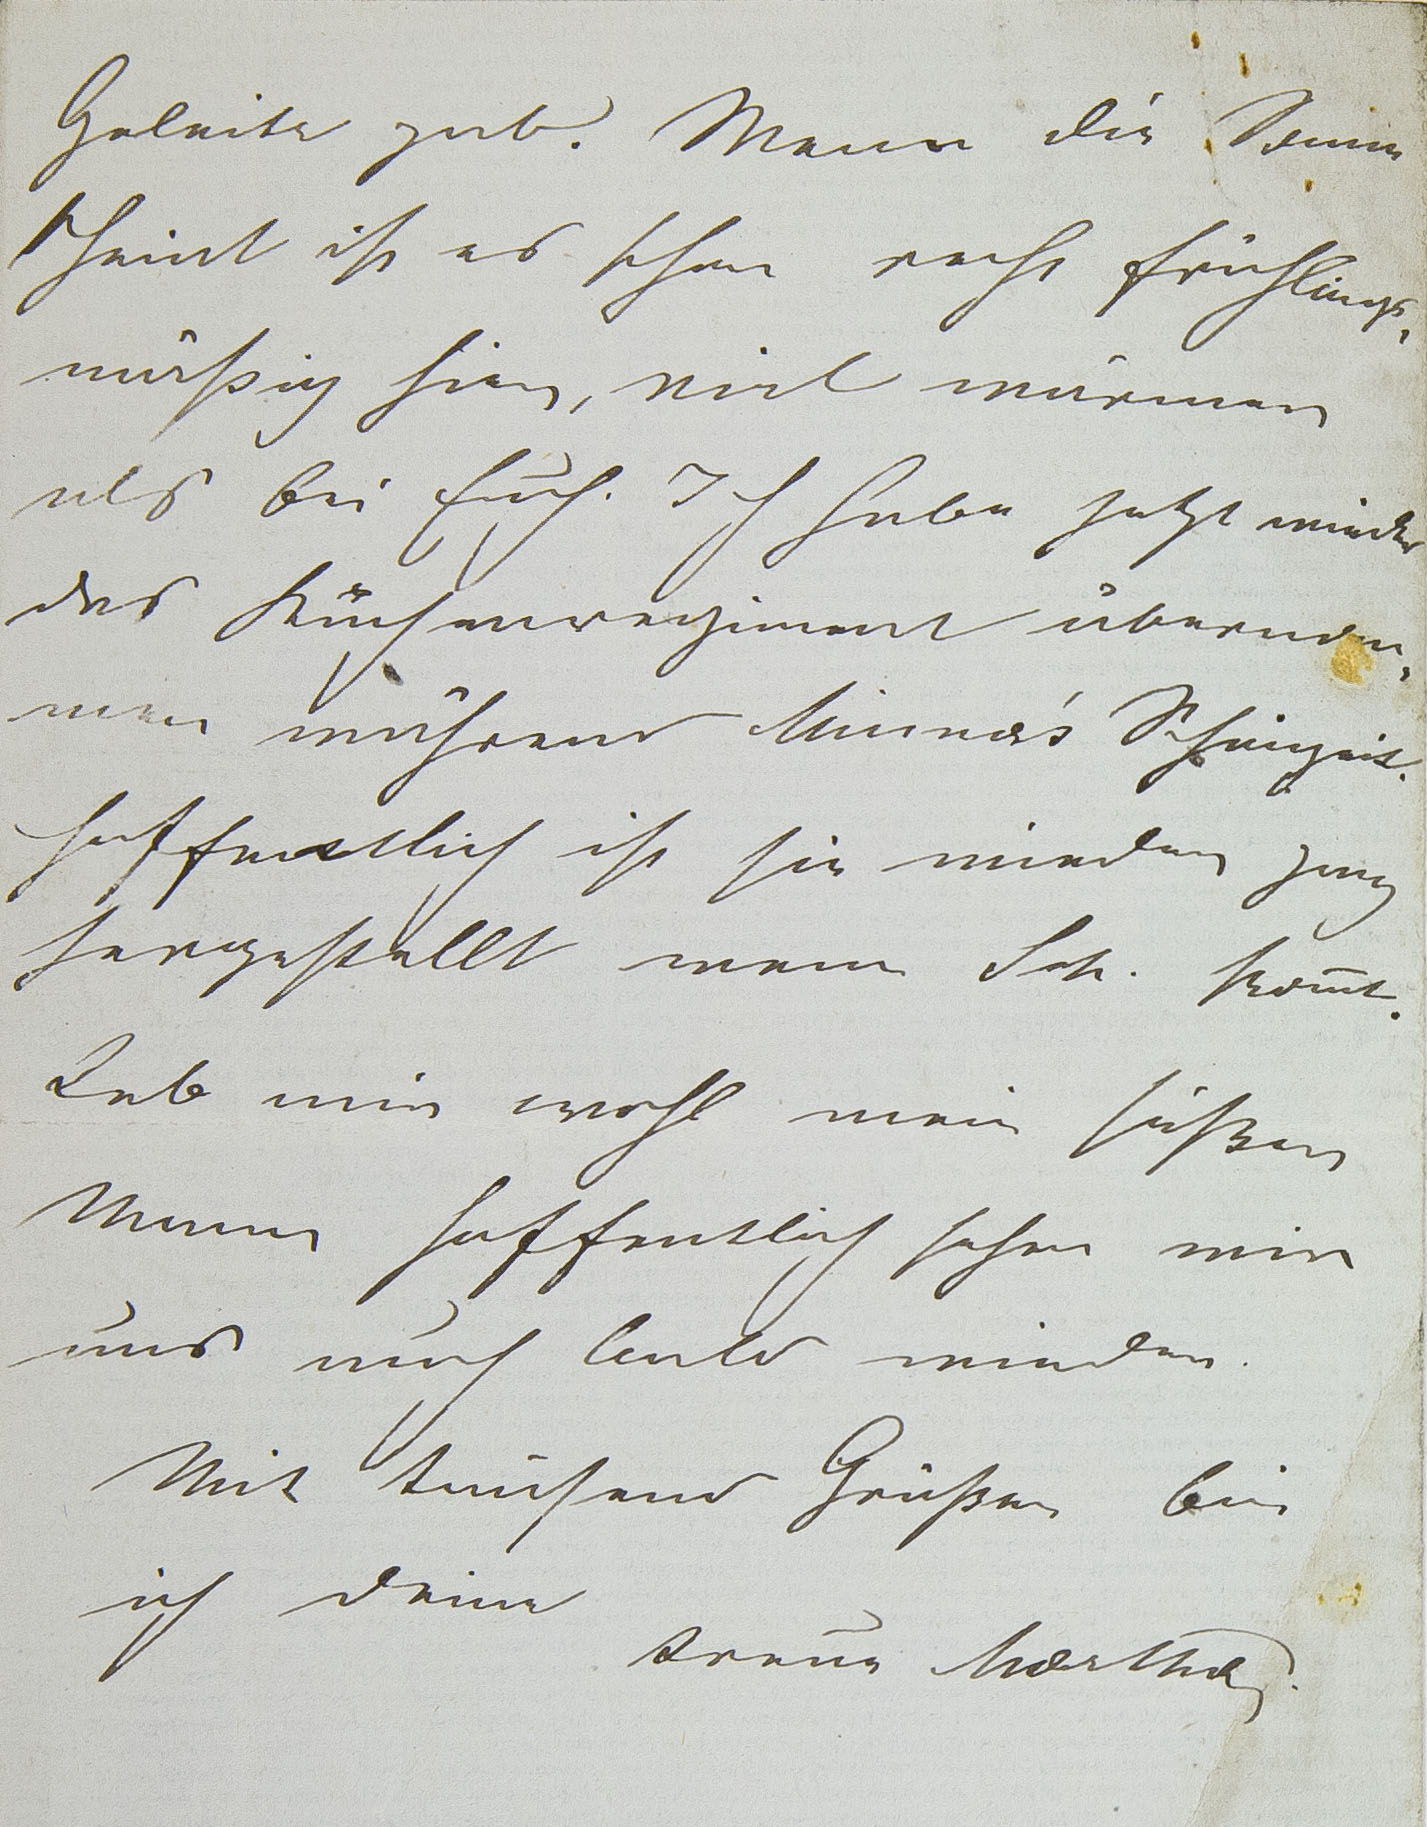 Geleite gab. Wenn die Sonne
scheint ist es schon recht frühlings-
mäßig hier, viel wärmer
als bei Euch. Ich habe jetzt wieder
das Küchenregiment übernom-
men während Minna's
hoffentlich ist sie wieder ganz
hergestellt wenn kom̄t.
Leb mir wohl mein süßer
Mann hoffentlich sehen wir
uns auch bald wieder.
Mit tausend Grüßen bin
ich deine
treue Martha.